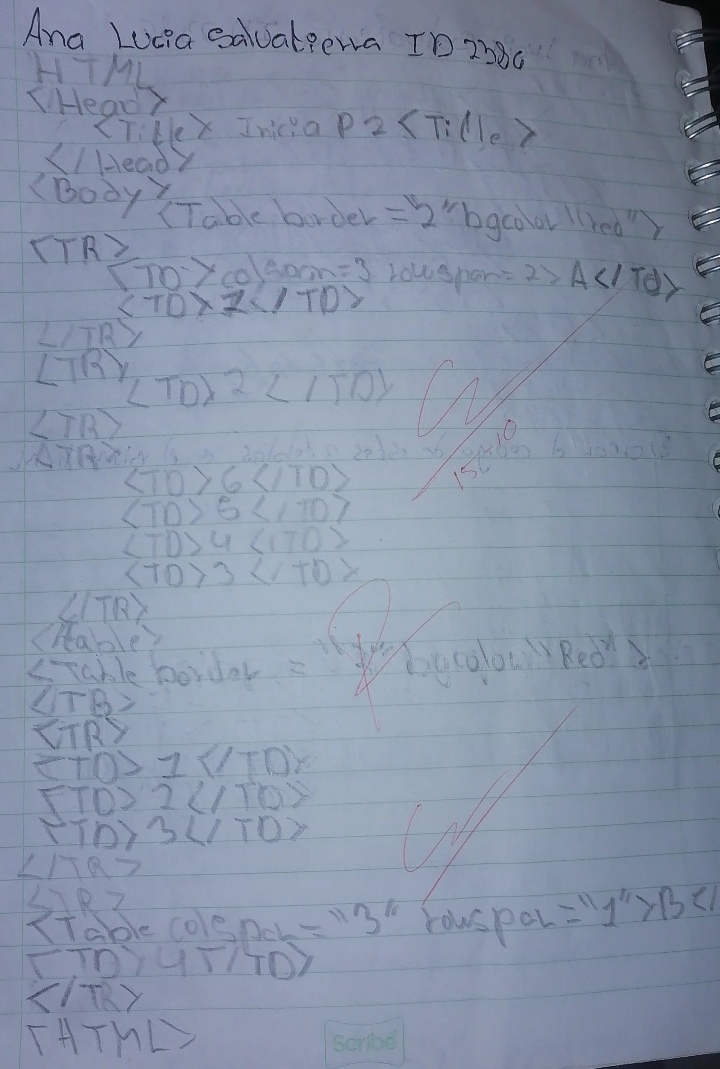 Ana Lucia Salvatierra ID 2386
HTML
<Head>
<Title> Inicia P 2 <Title>
</Head>
<Body>
<Table border = "2" bgcolor "red">
<TR>
<TD> colspan=3 rowspan=2> A </Td>
<TD> 1 </TD>
</TR>
<TR>
<TD> 2 </TD>
<TR>
<TR>
<TD> 6 </TD>
<TD> 5 </TD>
<TD> 4 </TD>
<TD> 3 </TD>
</TR>
</table>
<Table border = bgcolor "Red" >
</TB>
<TR>
<TD> 1 </TD>
<TD> 2 </TD>
<TD> 3 </TD>
</TR>
<TR>
<Table colspan="3" rowspan="1">B</
<TD> 4 </TD>
</TR>
<HTML>
Scribe